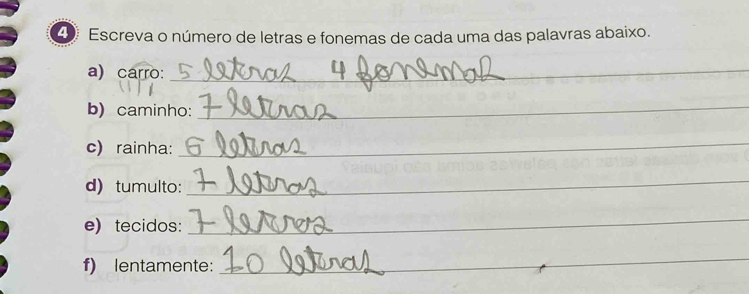 4 Escreva o número de letras e fonemas de cada uma das palavras abaixo.
a) carro: 5 letras 4 fonemas
b) caminho: 7 letras
c) rainha: 6 letras
d) tumulto: 7 letras
e) tecidos: 7 letras
f) lentamente: 10 letras